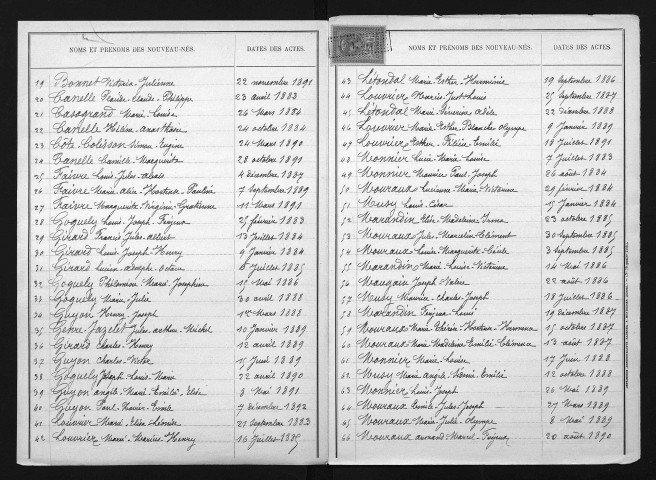 NOMS ET PRÉNOMS DES NOUVEAU-NÉS. DATES DES ACTES.
19 Bonnet Victoria-Julienne 22 novembre 1891
20 Canelle Claude-Philippe 23 avril 1883
21 Casagrand Marie-Louisa 26 Mars 1884
22 Canelle Hélène 24 octobre 1884
23 Côte-Colisson Simon Eugène 24 Mars 1890
24 Canelle Camille Marguerite 28 octobre 1891
25 Faivre Louis-Jules 4 décembre 1887
26 Faivre Marie-Alix-Hortense-Pauline 7 septembre 1889
27 Faivre Marguerite-Virginie 11 Mars 1891
28 Goguely Louis-Joseph 25 février 1883
29 Girard Francis Jules 13 Juillet 1884
30 Girard Louis-Joseph-Henry 9 janvier 1884
31 Girard adolphe 6 Juillet 1885
32 Goguely Philomène Marie Joséphine 15 Mai 1886
33 Goguely Marie Julie 30 avril 1888
34 Guyon Henry-Joseph 1er Mars 1888
35 Jules-arthur-Michel 10 janvier 1889
36 Girard Charles-Henry 12 avril 1889
37 Guyon Charles-Victor 15 Juin 1889
38 Goguely Joseph-Louis-Marie 22 avril 1890
39 Guyon angèle-Marie-Emilie-Elise 8 Mai 1891
40 Guyon Paul-Xavier 7 décembre 1892
41 Louvrier Marie-Elise-Léonise 21 septembre 1883
42 Louvrier Marie-Marius-Henry 16 Juillet 1885
NOMS ET PRÉNOMS DES NOUVEAU-NÉS. DATES DES ACTES.
43 Létondal Marie-Esther-Herminie 19 septembre 1886
44 Louvrier Marius-Just-Louis 25 septembre 1887
45 Létondal Marie adèle 22 décembre 1888
46 Louvrier Marie-Esther-Blanche-Olympe 9 Janvier 1889
47 Louvrier Esther Emilie 18 Juillet 1891
48 Monnier Lucie-Marie-Louise 7 Juillet 1883
49 Monnier Maurice-Paul-Joseph 26 août 1884
50 Mouraux Lucienne Marie-Victorine 29 février 1884
51 Musy Louis-César 15 Janvier 1884
52 Marandin Elise-Madeleine-Irma 23 octobre 1885
53 Mouraux Jules-Marcelin-Clément 30 septembre 1885
54 Mouraux Louise-Marguerite-Cécile 3 septembre 1885
55 Marandin Marie-Louise-Victorine 14 Mai 1886
56 Joseph 22 août 1886
57 Musy Maurice-Charles-Joseph 18 Juillet 1886
58 Marandin Louis 19 décembre 1887
59 Mouraux Marie-Thérèse-Hortense-Hermance 15 octobre 1887
60 Mouraux Marie Madeleine Emilie Clémence 13 août 1887
61 Monnier Marie-Louise 17 Juin 1888
62 Musy Marie angèle Emilie 12 octobre 1888
63 Monnier Louis-Joseph 26 Mai 1889
64 Mouraux Emile-Jules-Joseph 27 Mars 1889
65 Mouraux Marie-Julie-Olympe 8 Mai 1889
66 Mouraux Marcel 20 août 1890